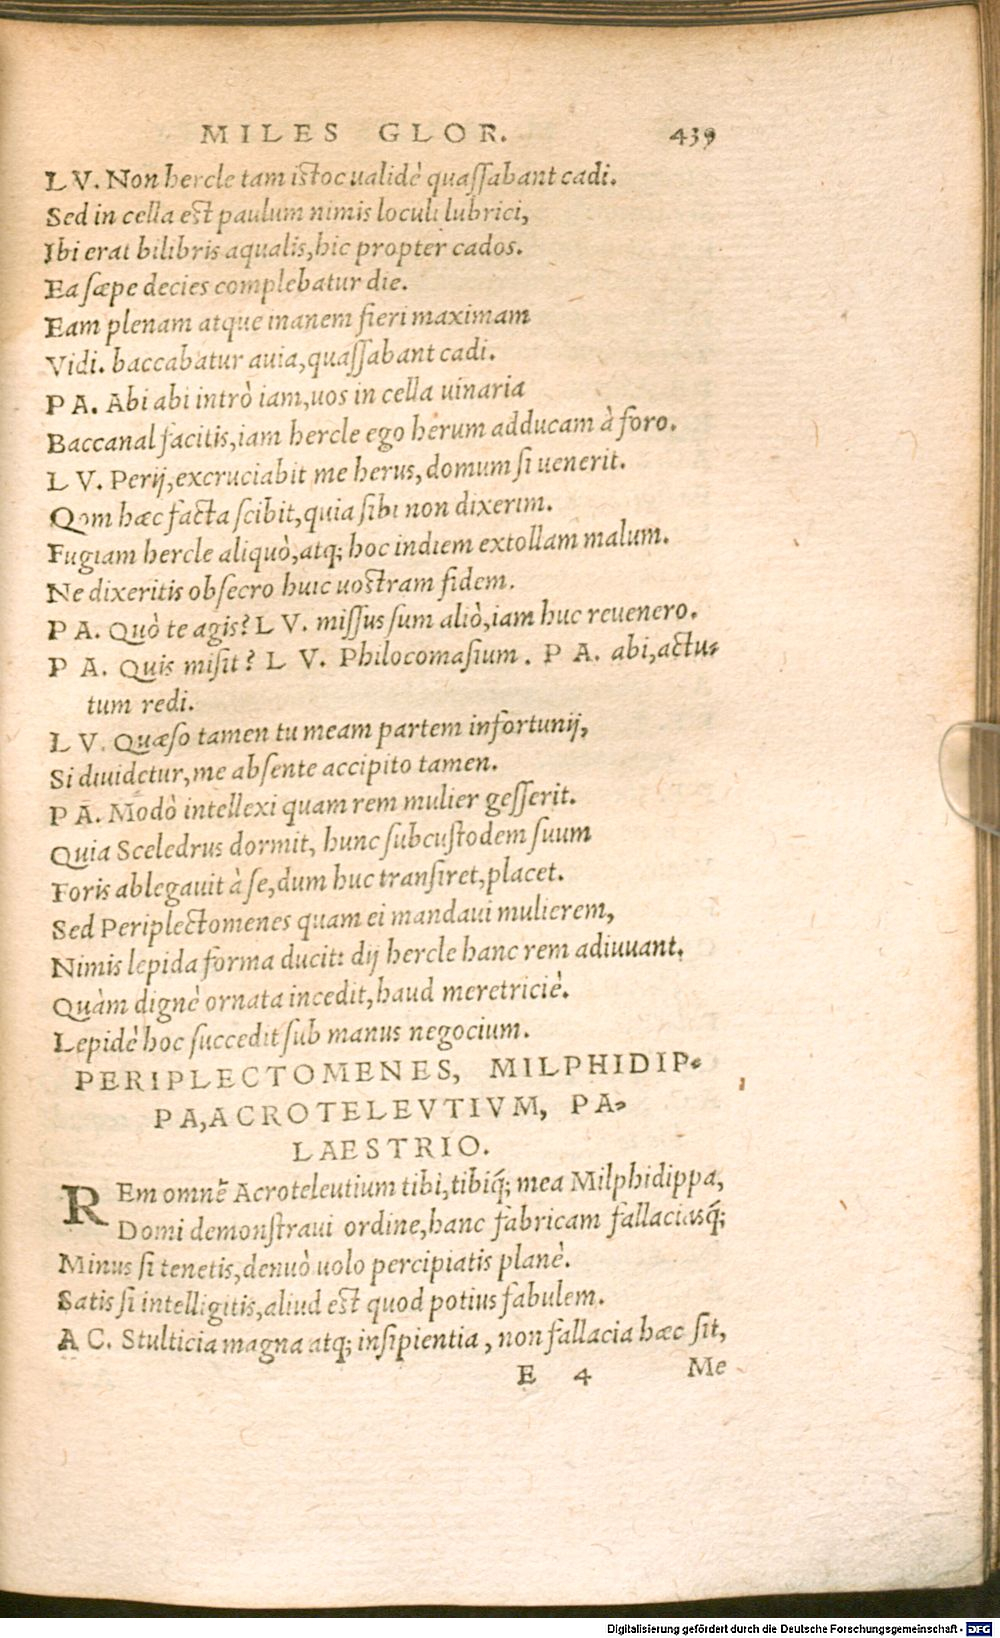 MILES GLOR. 439
LV. Non hercle tam istoc ualidè quaſſabant cadi.
Sed in cella est paulum nimis loculi lubrici,
Ibi erat bilibris aqualis, hic propter cados.
Ea ſæpe decies complebatur die.
Eam plenam atque inanem fieri maximam
Vidi. baccabatur auia, quaſſabant cadi.
PA. Abi abi intrò iam, uos in cella uinaria
Baccanal facitis, iam hercle ego herum adducam à foro.
LV. Perij, excruciabit me herus, domum ſi uenerit.
Qom hæc facta ſcibit, quia ſibi non dixerim.
Fugiam hercle aliquò, atq; hoc indiem extollam malum.
Ne dixeritis obſecro huic uostram fidem.
PA. Quò te agis? LV. miſſus ſum aliò, iam huc reuenero.
PA. Quis miſit? LV. Philocomaſium. PA. abi, actu-
tum redi.
LV. Quæſo tamen tu meam partem infortunij,
Si diuidetur, me abſente accipito tamen.
PA. Modò intellexi quam rem mulier geſſerit.
Quia Sceledrus dormit, hunc ſubcuſtodem ſuum
Foris ablegauit à ſe, dum huc tranſiret, placet.
Sed Periplectomenes quam ei mandaui mulierem,
Nimis lepida forma ducit: dij hercle hanc rem adiuuant.
Quàm dignè ornata incedit, haud meretriciè.
Lepidè hoc ſuccedit ſub manus negocium.
PERIPLECTOMENES, MILPHIDIP-
PA, ACROTELEVTIVM, PA-
LAESTRIO.
REm omnē Acroteleutium tibi, tibiq́; mea Milphidippa,
Domi demonſtraui ordine, hanc fabricam fallaciasq́;
Minus ſi tenetis, denuò uolo percipiatis planè.
Satis ſi intelligitis, aliud est quod potius fabulem.
AC. Stulticia magna atq; inſipientia, non fallacia hæc ſit,
E 4 Me
Digitalisierung gefördert durch die Deutsche Forschungsgemeinschaft - DFG